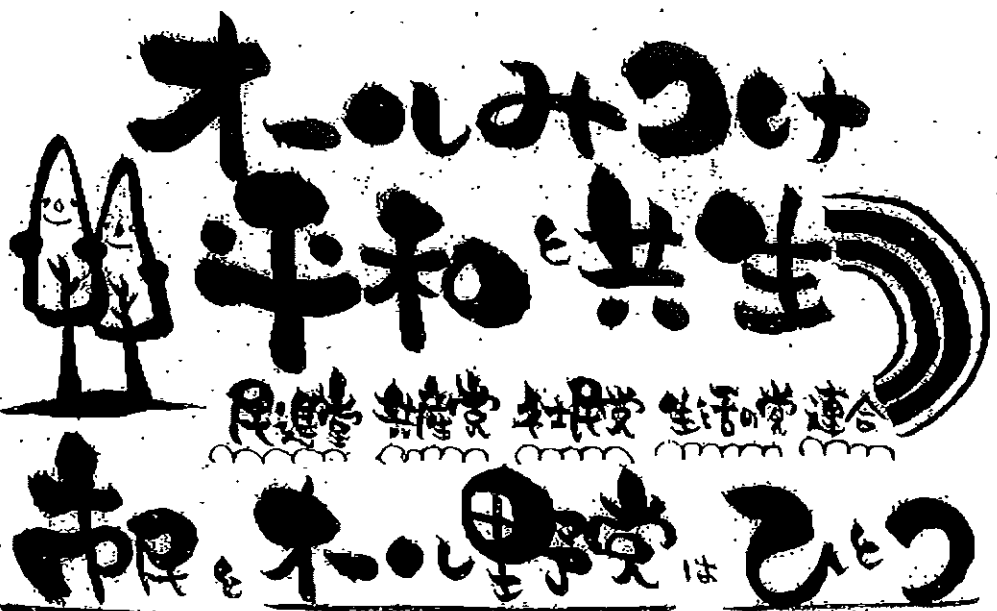 オールみつけ
平和と共生
民進党 共産党 社民党 生活の党 連合
市民とオール野党はひとつ